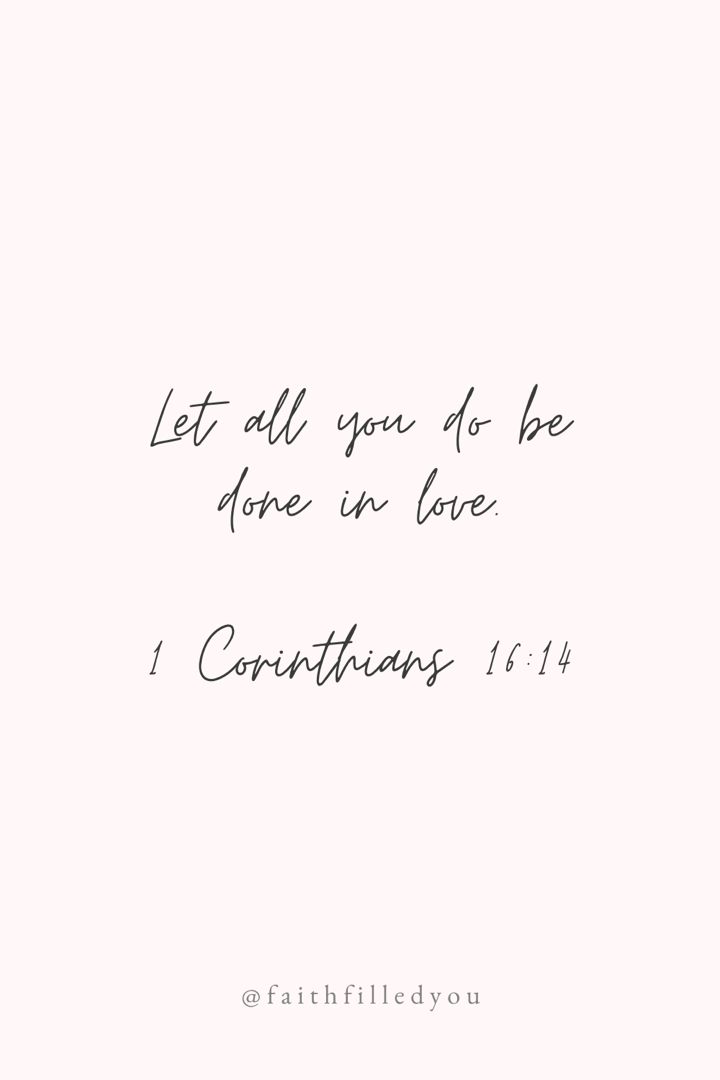 Let all you do be
done in love.
1 Corinthians 16:14
@faithfilledyou